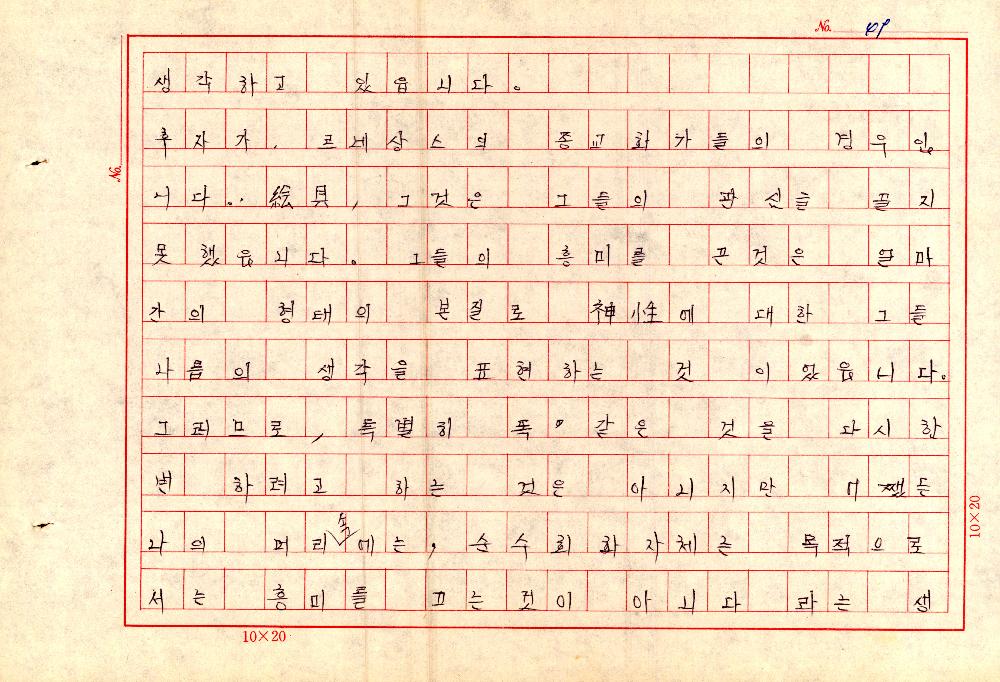 No. 49
생각하고 있읍니다.
후자가. 르네상스의 종교화가들의 경우입
니다.. 絵具, 그것은 그들의 관심을 끌지
못했읍니다. 그들의 흥미를 끈것은 얼마
간의 형태의 본질로 神性에 대한 그들
나름의 생각을 표현하는 것 이었읍니다.
그러므로, 특별히 똑 같은 것을 다시 한
번 하려고 하는 것은 아니지만 어쨌든
나의 머리속에는, 순수회화자체는 목적으로
서는 흥미를 끄는것이 아니다 라는 생
No.
10×20
10×20